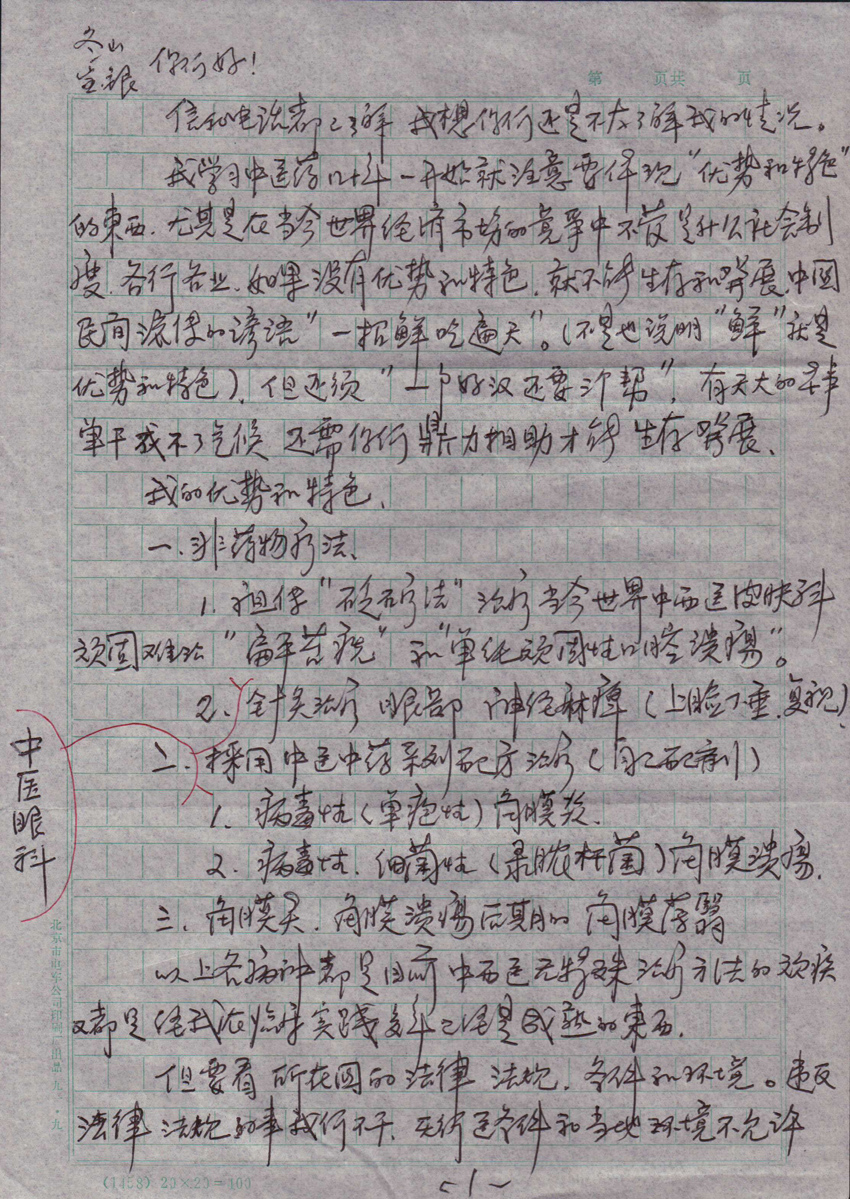 冬山
你们好！
第 页共 页
信和电话都已了解 我想你们还是不太了解我的情况。
我学习中医药几十年 一开始就注意要体现“优势和特色”
的東西，尤其是在当今世界经济市场的竞争中不管是什么社会制
度，各行各业，如果没有优势和特色，就不能生存和発展，中国
民间流传的谚语“一招鲜吃遍天”。（不是也说明“鲜”就是
优势和特色），但还须“一个好汉还要三个帮”，有天大的本事
单干成不了气候 还需你们鼎力相助才能生存発展、
我的优势和特色、
一、非药物疗法、
1. 祖传“砭石疗法”治疗当今世界中西医皮肤科
顽固难治“扁平苔癣”和“单纯顽固性口腔溃疡”。
2. 针灸治疗 眼部 神经麻痹（上睑下垂，复视）
二、採用中医中药系列配方治疗（自己配制）
1. 病毒性（单疱性）角膜炎.
2. 病毒性、细菌性（绿脓杆菌）角膜溃疡.
中医眼科
三、角膜炎、角膜溃疡后期的 角膜薄翳
以上各病种都是目前 中西医无特殊治疗方法的顽疾
又都是经我在临床实践多年已经是成熟的東西.
但要看所在国的法律 法规，条件和环境。违反
法律 法规的事我们不干、无行医条件和当地环境不允许
(1458) 20×20=400
-1-